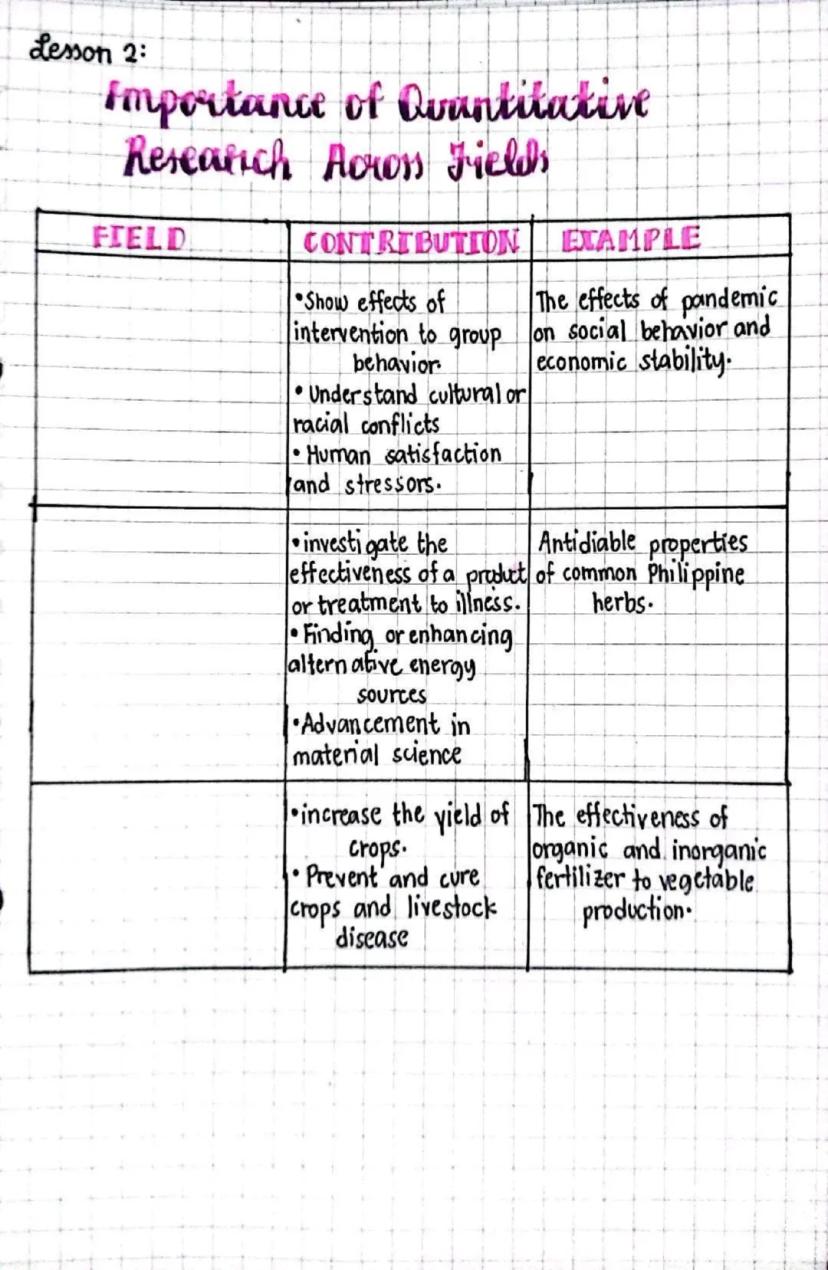 Lesson 2:
Importance of Quantitative
Research Across Fields
FIELD
CONTRIBUTION
EXAMPLE
•Show effects of
intervention to group
behavior.
• Understand cultural or
racial conflicts
• Human satisfaction
and stressors.
The effects of pandemic
on social behavior and
economic stability.
•investigate the
effectiveness of a product
or treatment to illness.
•Finding or enhancing
alternative energy
sources
•Advancement in
material science
Antidiable properties
of common Philippine
herbs.
•increase the yield of
crops.
• Prevent and cure
crops and livestock
disease
The effectiveness of
organic and inorganic
fertilizer to vegetable
production.